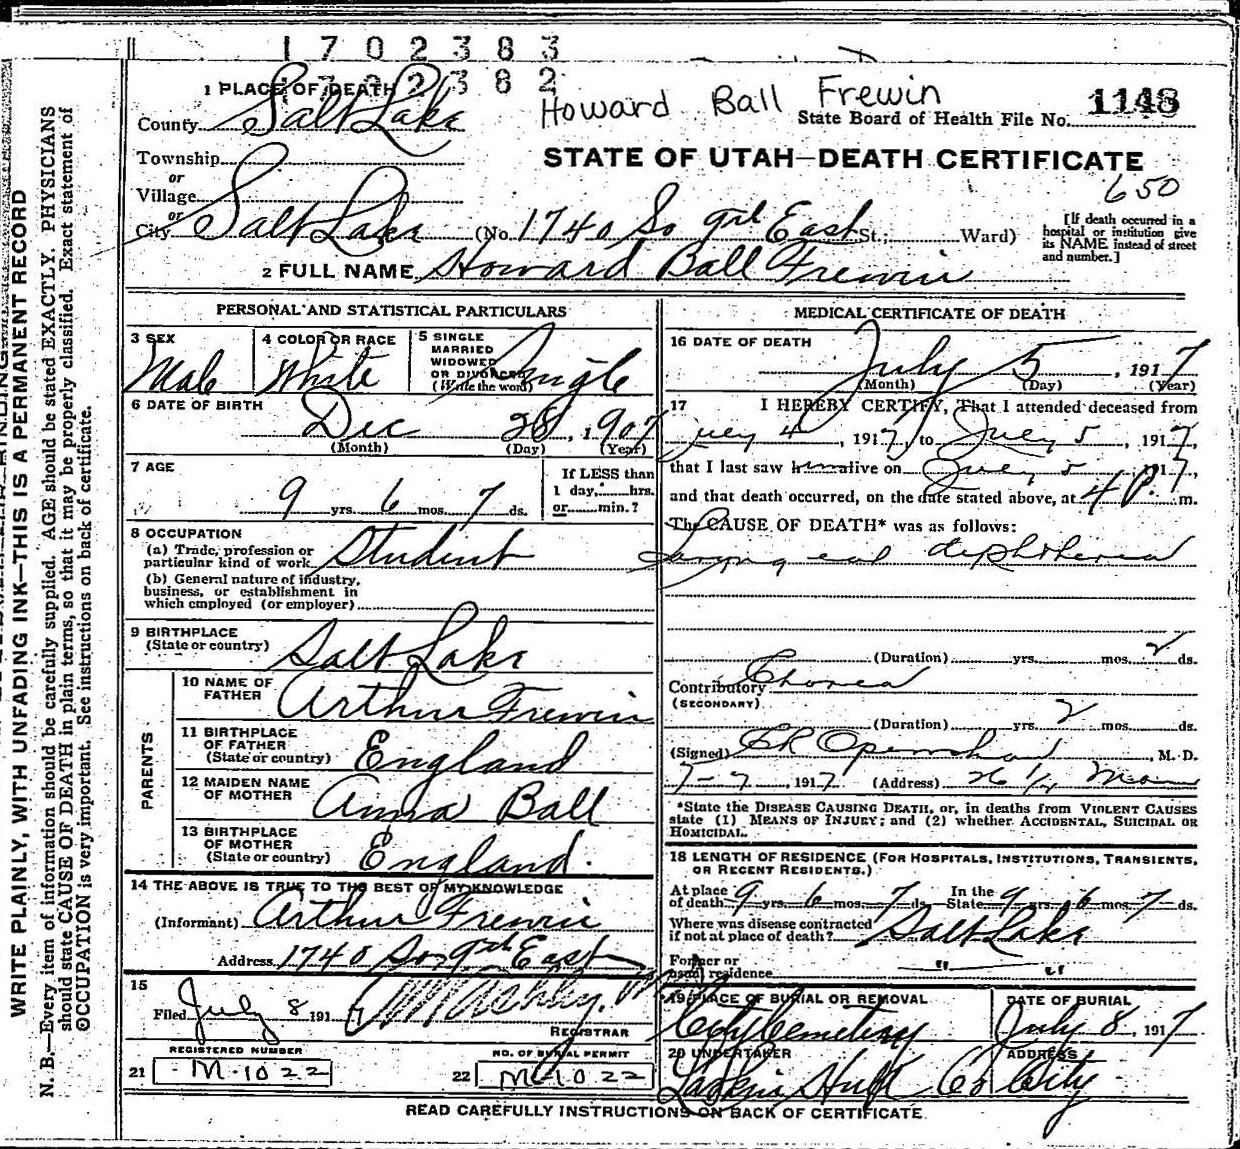 1702383
1702382
1 PLACE OF DEATH
Howard Ball Frewin
1148
County Salt Lake
State Board of Health File No.
Township
STATE OF UTAH—DEATH CERTIFICATE
or
650
Village
or
City Salt Lake (No. 1740 So 9th East St.; Ward)
[If death occurred in a hospital or institution give its NAME instead of street and number.]
2 FULL NAME Howard Ball Frewin
PERSONAL AND STATISTICAL PARTICULARS
3 SEX
Male
4 COLOR OR RACE
White
5 SINGLE
MARRIED
WIDOWED
OR DIVORCED
(Write the word)
Single
6 DATE OF BIRTH
Dec 28, 1907
(Month) (Day) (Year)
7 AGE
9 yrs. 6 mos. 7 ds.
If LESS than
1 day, hrs.
or min.?
8 OCCUPATION
(a) Trade, profession or
particular kind of work Student
(b) General nature of industry,
business, or establishment in
which employed (or employer)
9 BIRTHPLACE
(State or country) Salt Lake
PARENTS
10 NAME OF
FATHER Arthur Frewin
11 BIRTHPLACE
OF FATHER
(State or country) England
12 MAIDEN NAME
OF MOTHER Anna Ball
13 BIRTHPLACE
OF MOTHER
(State or country) England.
14 THE ABOVE IS TRUE TO THE BEST OF MY KNOWLEDGE
(Informant) Arthur Frewin
Address 1740 So 9th East
15
Filed July 8 1917
REGISTRAR
REGISTERED NUMBER
21 M-1022
NO. OF BURIAL PERMIT
22 M-1022
MEDICAL CERTIFICATE OF DEATH
16 DATE OF DEATH
July 5, 1917
(Month) (Day) (Year)
17 I HEREBY CERTIFY, That I attended deceased from
July 4, 1917, to July 5, 1917,
that I last saw him alive on July 5, 1917,
and that death occurred, on the date stated above, at 4 P. m.
The CAUSE OF DEATH* was as follows:
Laryngeal diphtheria
(Duration) yrs. mos. 2 ds.
Contributory Chorea
(SECONDARY)
(Duration) yrs. 2 mos. ds.
(Signed) Openshaw, M. D.
7-7, 1917 (Address) 26 1/2 Main
*State the DISEASE CAUSING DEATH, or, in deaths from VIOLENT CAUSES
state (1) MEANS OF INJURY; and (2) whether ACCIDENTAL, SUICIDAL OR
HOMICIDAL.
18 LENGTH OF RESIDENCE (FOR HOSPITALS, INSTITUTIONS, TRANSIENTS,
OR RECENT RESIDENTS.)
At place
of death 9 yrs. 6 mos. 7 ds.
In the
State 9 yrs. 6 mos. 7 ds.
Where was disease contracted
if not at place of death? Salt Lake
Former or
usual residence " "
19 PLACE OF BURIAL OR REMOVAL
City Cemetery
DATE OF BURIAL
July 8, 1917
20 UNDERTAKER
Larkin Hull Co
ADDRESS
City
READ CAREFULLY INSTRUCTIONS ON BACK OF CERTIFICATE
WRITE PLAINLY, WITH UNFADING INK—THIS IS A PERMANENT RECORD
N. B.—Every item of information should be carefully supplied. AGE should be stated EXACTLY. PHYSICIANS
should state CAUSE OF DEATH in plain terms, so that it may be properly classified. Exact statement of
OCCUPATION is very important. See instructions on back of certificate.